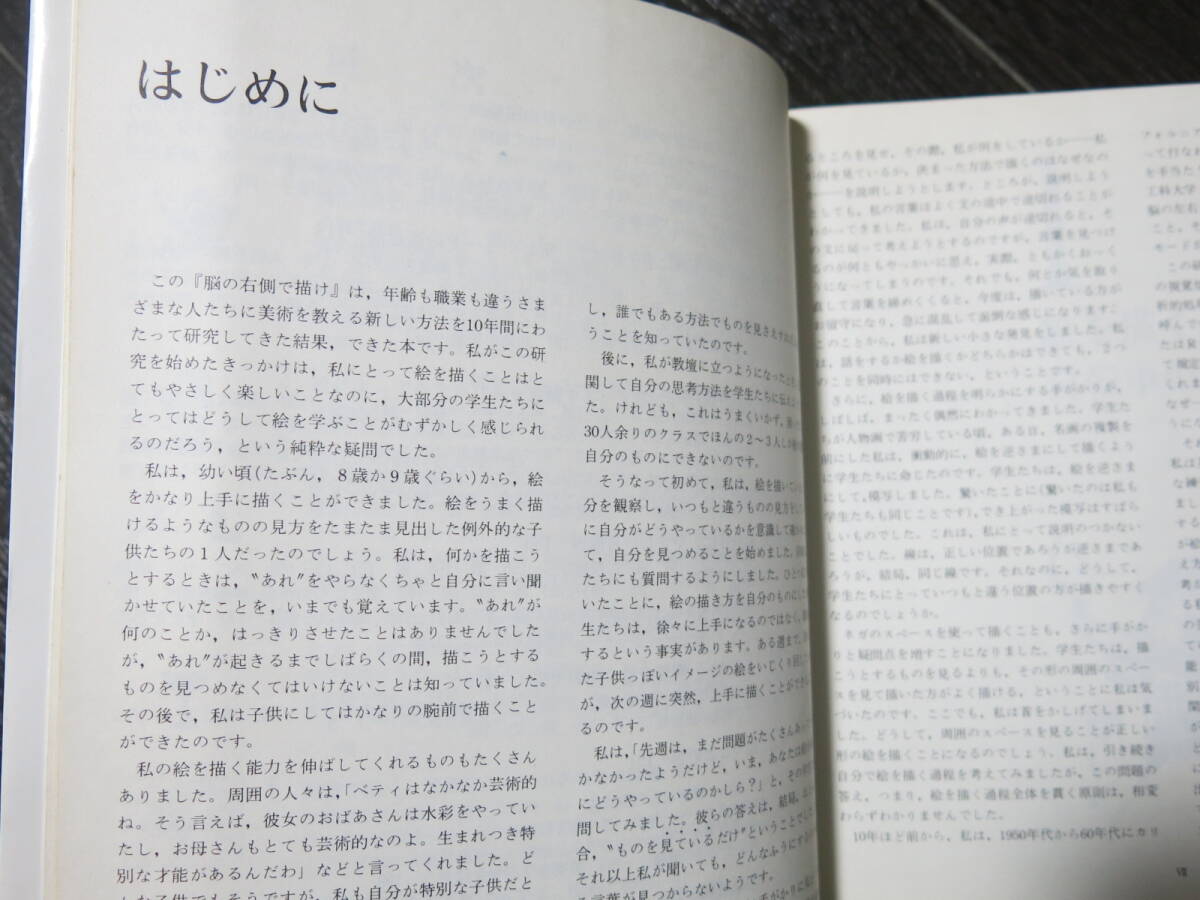 はじめに
この『脳の右側で描け』は，年齢も職業も違うさま
ざまな人たちに美術を教える新しい方法を10年間にわ
たって研究してきた結果，できた本です。私がこの研
究を始めたきっかけは，私にとって絵を描くことはと
てもやさしく楽しいことなのに，大部分の学生たちに
とってはどうして絵を学ぶことがむずかしく感じられ
るのだろう，という純粋な疑問でした。
私は，幼い頃(たぶん，8歳か9歳ぐらい)から，絵
をかなり上手に描くことができました。絵をうまく描
けるようなものの見方をたまたま見出した例外的な子
供たちの1人だったのでしょう。私は，何かを描こう
とするときは，“あれ”をやらなくちゃと自分に言い聞
かせていたことを，いまでも覚えています。“あれ”が
何のことか，はっきりさせたことはありませんでした
が，“あれ”が起きるまでしばらくの間，描こうとする
ものを見つめなくてはいけないことは知っていました。
その後で，私は子供にしてはかなりの腕前で描くこと
ができたのです。
私の絵を描く能力を伸ばしてくれるものもたくさん
ありました。周囲の人々は，「ベティはなかなか芸術的
ね。そう言えば，彼女のおばあさんは水彩をやってい
たし，お母さんもとても芸術的なのよ。生まれつき特
別な才能があるんだわ」などと言ってくれました。ど
んな子供でもそうですが，私も自分が特別な子供だと
し，誰でもある方法でものを見さえすれ
うことを知っていたのです。
後に，私が教壇に立つようになった
関して自分の思考方法を学生たちに伝え
た。けれども，これはうまくいかず，
30人余りのクラスでほんの2〜3人し
自分のものにできないのです。
そうなって初めて，私は，絵を描いて
分を観察し，いつもと違うものの見方を
に自分がどうやっているかを意識して
て，自分を見つめることを始めました。
たちにも質問するようにしました。ひと
いたことに，絵の描き方を自分のものに
生たちは，徐々に上手になるのではなく，
するという事実があります。ある週まで，
た子供っぽいイメージの絵をいじくり回し
が，次の週に突然，上手に描くことができ
るのです。
私は，「先週は，まだ問題がたくさんあっ
かなかったようだけど，いま，あなたは
にどうやっているのかしら？」と，その
問してみました。彼らの答えは，結局，
合，“ものを見ているだけ”ということでし
それ以上私が聞いても，どんなふうにする
る言葉が見つからないようです。
るところを見せ，その際，私が何をしているか――私
が何を見ているか，決まった方法で描くのはなぜなの
か――を説明しようとします。ところが，説明しよう
としても，私の言葉はよく文の途中で途切れることが
わかってきました。私は，自分の声が途切れると，そ
の文に戻って考えようとするのですが，言葉を見つけ
るのが何ともやっかいに思え，実際，ともかくおっく
うになってしまうのです。それでも，何とか気を取り
直して言葉を締めくくると，今度は，描いている方が
お留守になり，急に混乱して面倒な感じになります。
このことから，私は新しい小さな発見をしました。私
は，話をするか絵を描くかどちらかはできても，2つ
のことを同時にはできない，ということです。
さらに，絵を描く過程を明らかにする手がかりが，
しばしば，まったく偶然にわかってきました。学生た
ちが人物画で苦労している頃，ある日，名画の複製を
前にした私は，衝動的に，絵を逆さまにして描くよう
に学生たちに命じたのです。学生たちは，絵を逆さま
にして，模写しました。驚いたことに(驚いたのは私も
学生たちも同じことです)，でき上がった模写はすばら
しいものでした。これは，私にとって説明のつかない
ことでした。線は，正しい位置であろうが逆さまであ
ろうが，結局，同じ線です。それなのに，どうして，
学生たちにとっていつもと違う位置の方が描きやすく
なるのでしょうか。
ネガのスペースを使って描くことも，さらに手がか
りと疑問点を増すことになりました。学生たちは，描
こうとするものを見るよりも，その形の周囲のスペー
スを見て描いた方がよく描ける，ということに私は気
づいたのです。ここでも，私は首をかしげてしまいま
した。どうして，周囲のスペースを見ることが正しい
形の絵を描くことになるのでしょう。私は，引き続き
自分で絵を描く過程を考えてみましたが，この問題の
答え，つまり，絵を描く過程全体を貫く原則は，相変
わらずわかりませんでした。
10年ほど前から，私は，1950年代から60年代にカリ
フォルニア
って行なわ
を手当た
工科大学
脳の左右
こと，そ
モード
この研
の視覚
析的処
呼んで
たは良
て規定
くれま
なぜ
うにな
VII